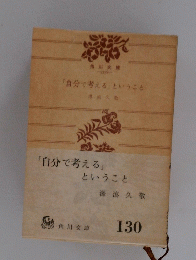 角川文庫
「自分で考える」ということ
澤瀉久敬
「自分で考える」
ということ
澤瀉久敬
角川文庫
130